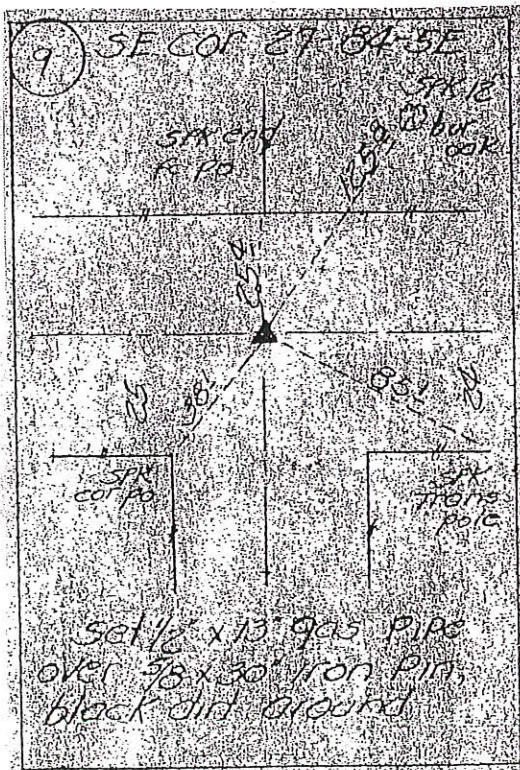 9
SE COR 27-84-3E
SPK 12"
bur
oak
SPK end
fc po
25.4'
38'
85'
SPK
cor po
SPK
trans
pole
Set 1/2" x 13" gas pipe
over 3/8 x 30" iron pin,
black dirt around